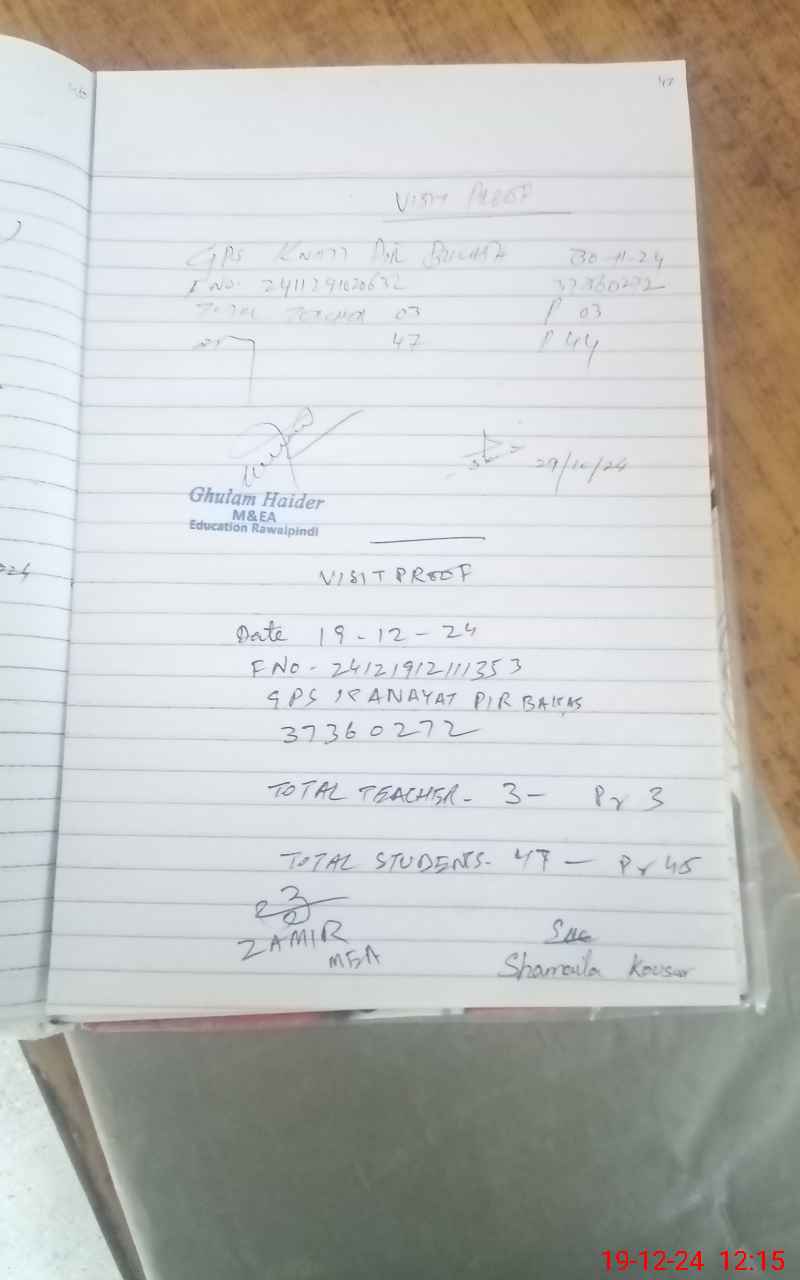 46
47
VISIT PROOF
GPS PIR 30-11-24
F NO. 37360272
TOTAL TEACHER 03 P 03
47 P 44
Ghulam Haider
M&EA
Education Rawalpindi
VISIT PROOF
Date 19-12-24
F NO- 24121912111353
GPS KANAYAT PIR BAKAS
37360272
TOTAL TEACHER- 3- Pr 3
TOTAL STUDENTS- 47 - Pr 45
ZAMIR
MEA
Kousar
19-12-24 12:15